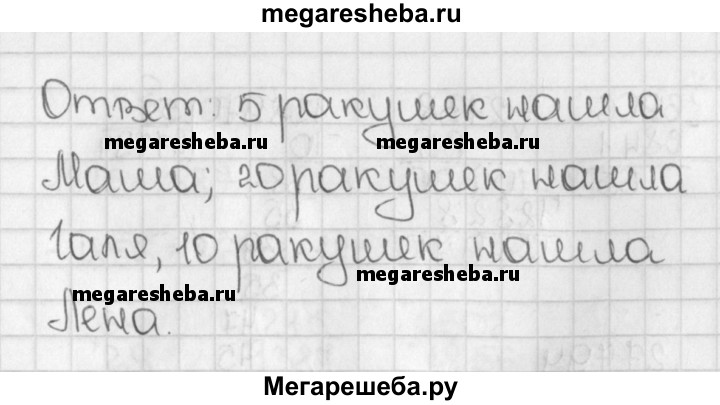 megaresheba.ru
Ответ: 5 ракушек нашла
megaresheba.ru megaresheba.ru
Маша; 20 ракушек нашла
Галя, 10 ракушек нашла
megaresheba.ru megaresheba.ru
Лена.
Мегарешеба.ру